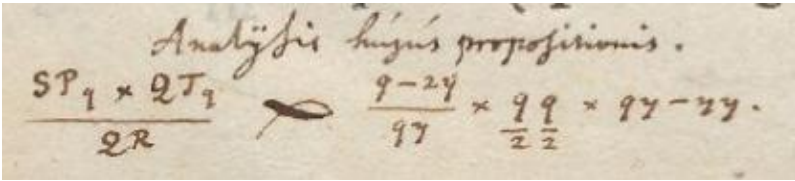 Analÿsis hújús propositionis.
SPq × QTq / QR ∝ q−2y / qy × q/2 q/2 × qy−yy.